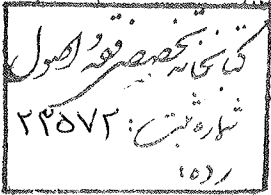 کتابخانه تخصصی فقه و اصول
شماره ثبت: ۲۳۵۷۲
رده: